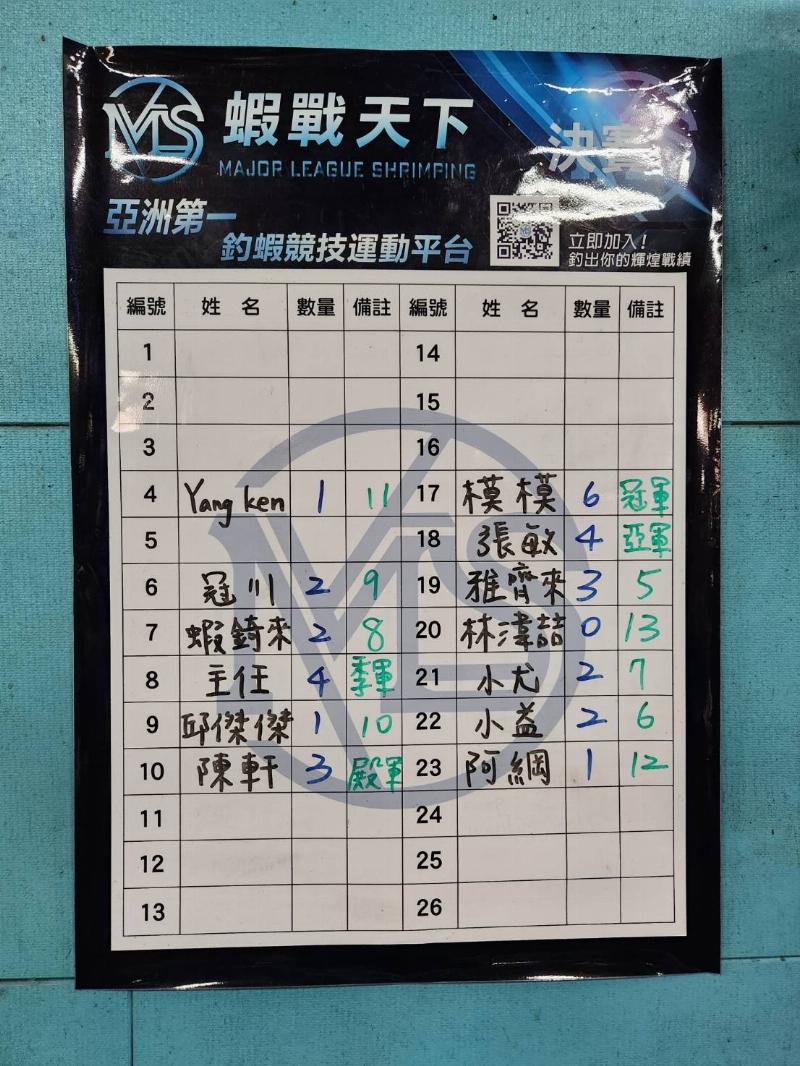 MLS 蝦戰天下
MAJOR LEAGUE SHRIMPING
決賽
亞洲第一
釣蝦競技運動平台
立即加入!
釣出你的輝煌戰績
編號 姓名 數量 備註 編號 姓名 數量 備註
1 14
2 15
3 16
4 Yang ken 1 11 17 模模 6 冠軍
5 18 張敏 4 亞軍
6 冠川 2 9 19 雅齊來 3 5
7 蝦錡來 2 8 20 林湋喆 0 13
8 主任 4 季軍 21 小尤 2 7
9 邱傑傑 1 10 22 小益 2 6
10 陳軒 3 殿軍 23 阿綱 1 12
11 24
12 25
13 26